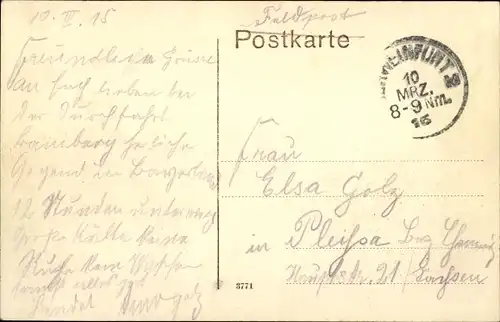 10. III. 15
Feldpost
Postkarte
SCHWEINFURT 2
10
MRZ.
8-9 Nm.
15
Freundliche Grüsse
an Euch Lieben bei
der Durchfahrt
Bamberg herliche
Gegend im Bayerland
12 Stunden unterwegs
große Kälte keine
Ruhe kein
sonst alles gut
Frau
Elsa Golz
in Pleißa Bez Chemnitz
Hauptstr. 21 / Sachsen
3771